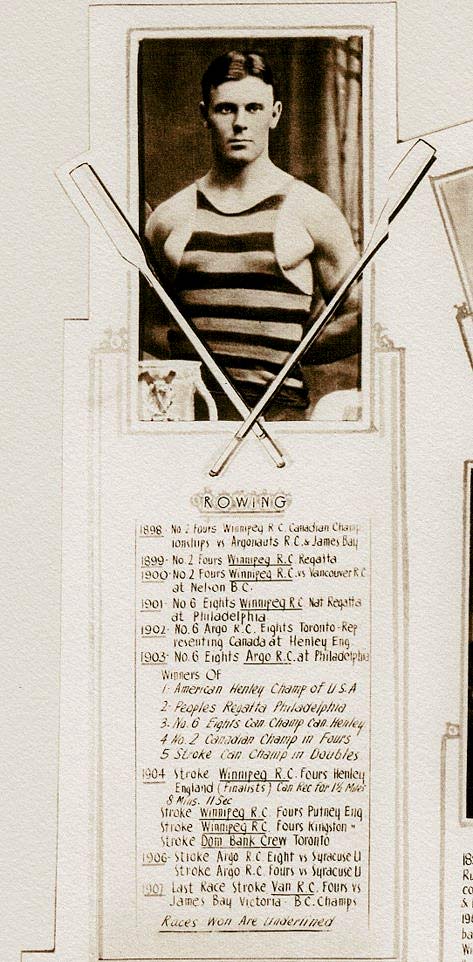 ROWING
1898- No. 2 Fours Winnipeg R.C. Canadian Champ
ionships vs Argonauts R.C. & James Bay
1899- No. 2 Fours Winnipeg R.C. Regatta
1900- No. 2 Fours Winnipeg R.C. vs Vancouver R.C.
at Nelson B.C.
1901- No 6 Eights Winnipeg R.C. Nat Regatta
at Philadelphia
1902- No. 6 Argo R.C. Eights Toronto-Rep
resenting Canada at Henley Eng.
1903- No. 6 Eights Argo R.C. at Philadelphia
Winners Of
1- American Henley Champ of U.S.A
2- Peoples Regatta Philadelphia
3- No. 6 Eights Can Champ Can. Henley
4 No. 2 Canadian Champ in Fours
5 Stroke Can Champ in Doubles
1904 Stroke Winnipeg R.C. Fours Henley
England (Finalists) Can Rec for 1½ Miles
8 Mins. 11 Sec
Stroke Winnipeg R.C. Fours Putney Eng
Stroke Winnipeg R.C. Fours Kingston "
Stroke Dom Bank Crew Toronto
1906- Stroke Argo R.C. Eight vs Syracuse U
Stroke Argo R.C. Fours vs Syracuse U
1907 Last Race Stroke Van R.C. Fours vs
James Bay Victoria - B.C. Champs
Races Won Are Underlined